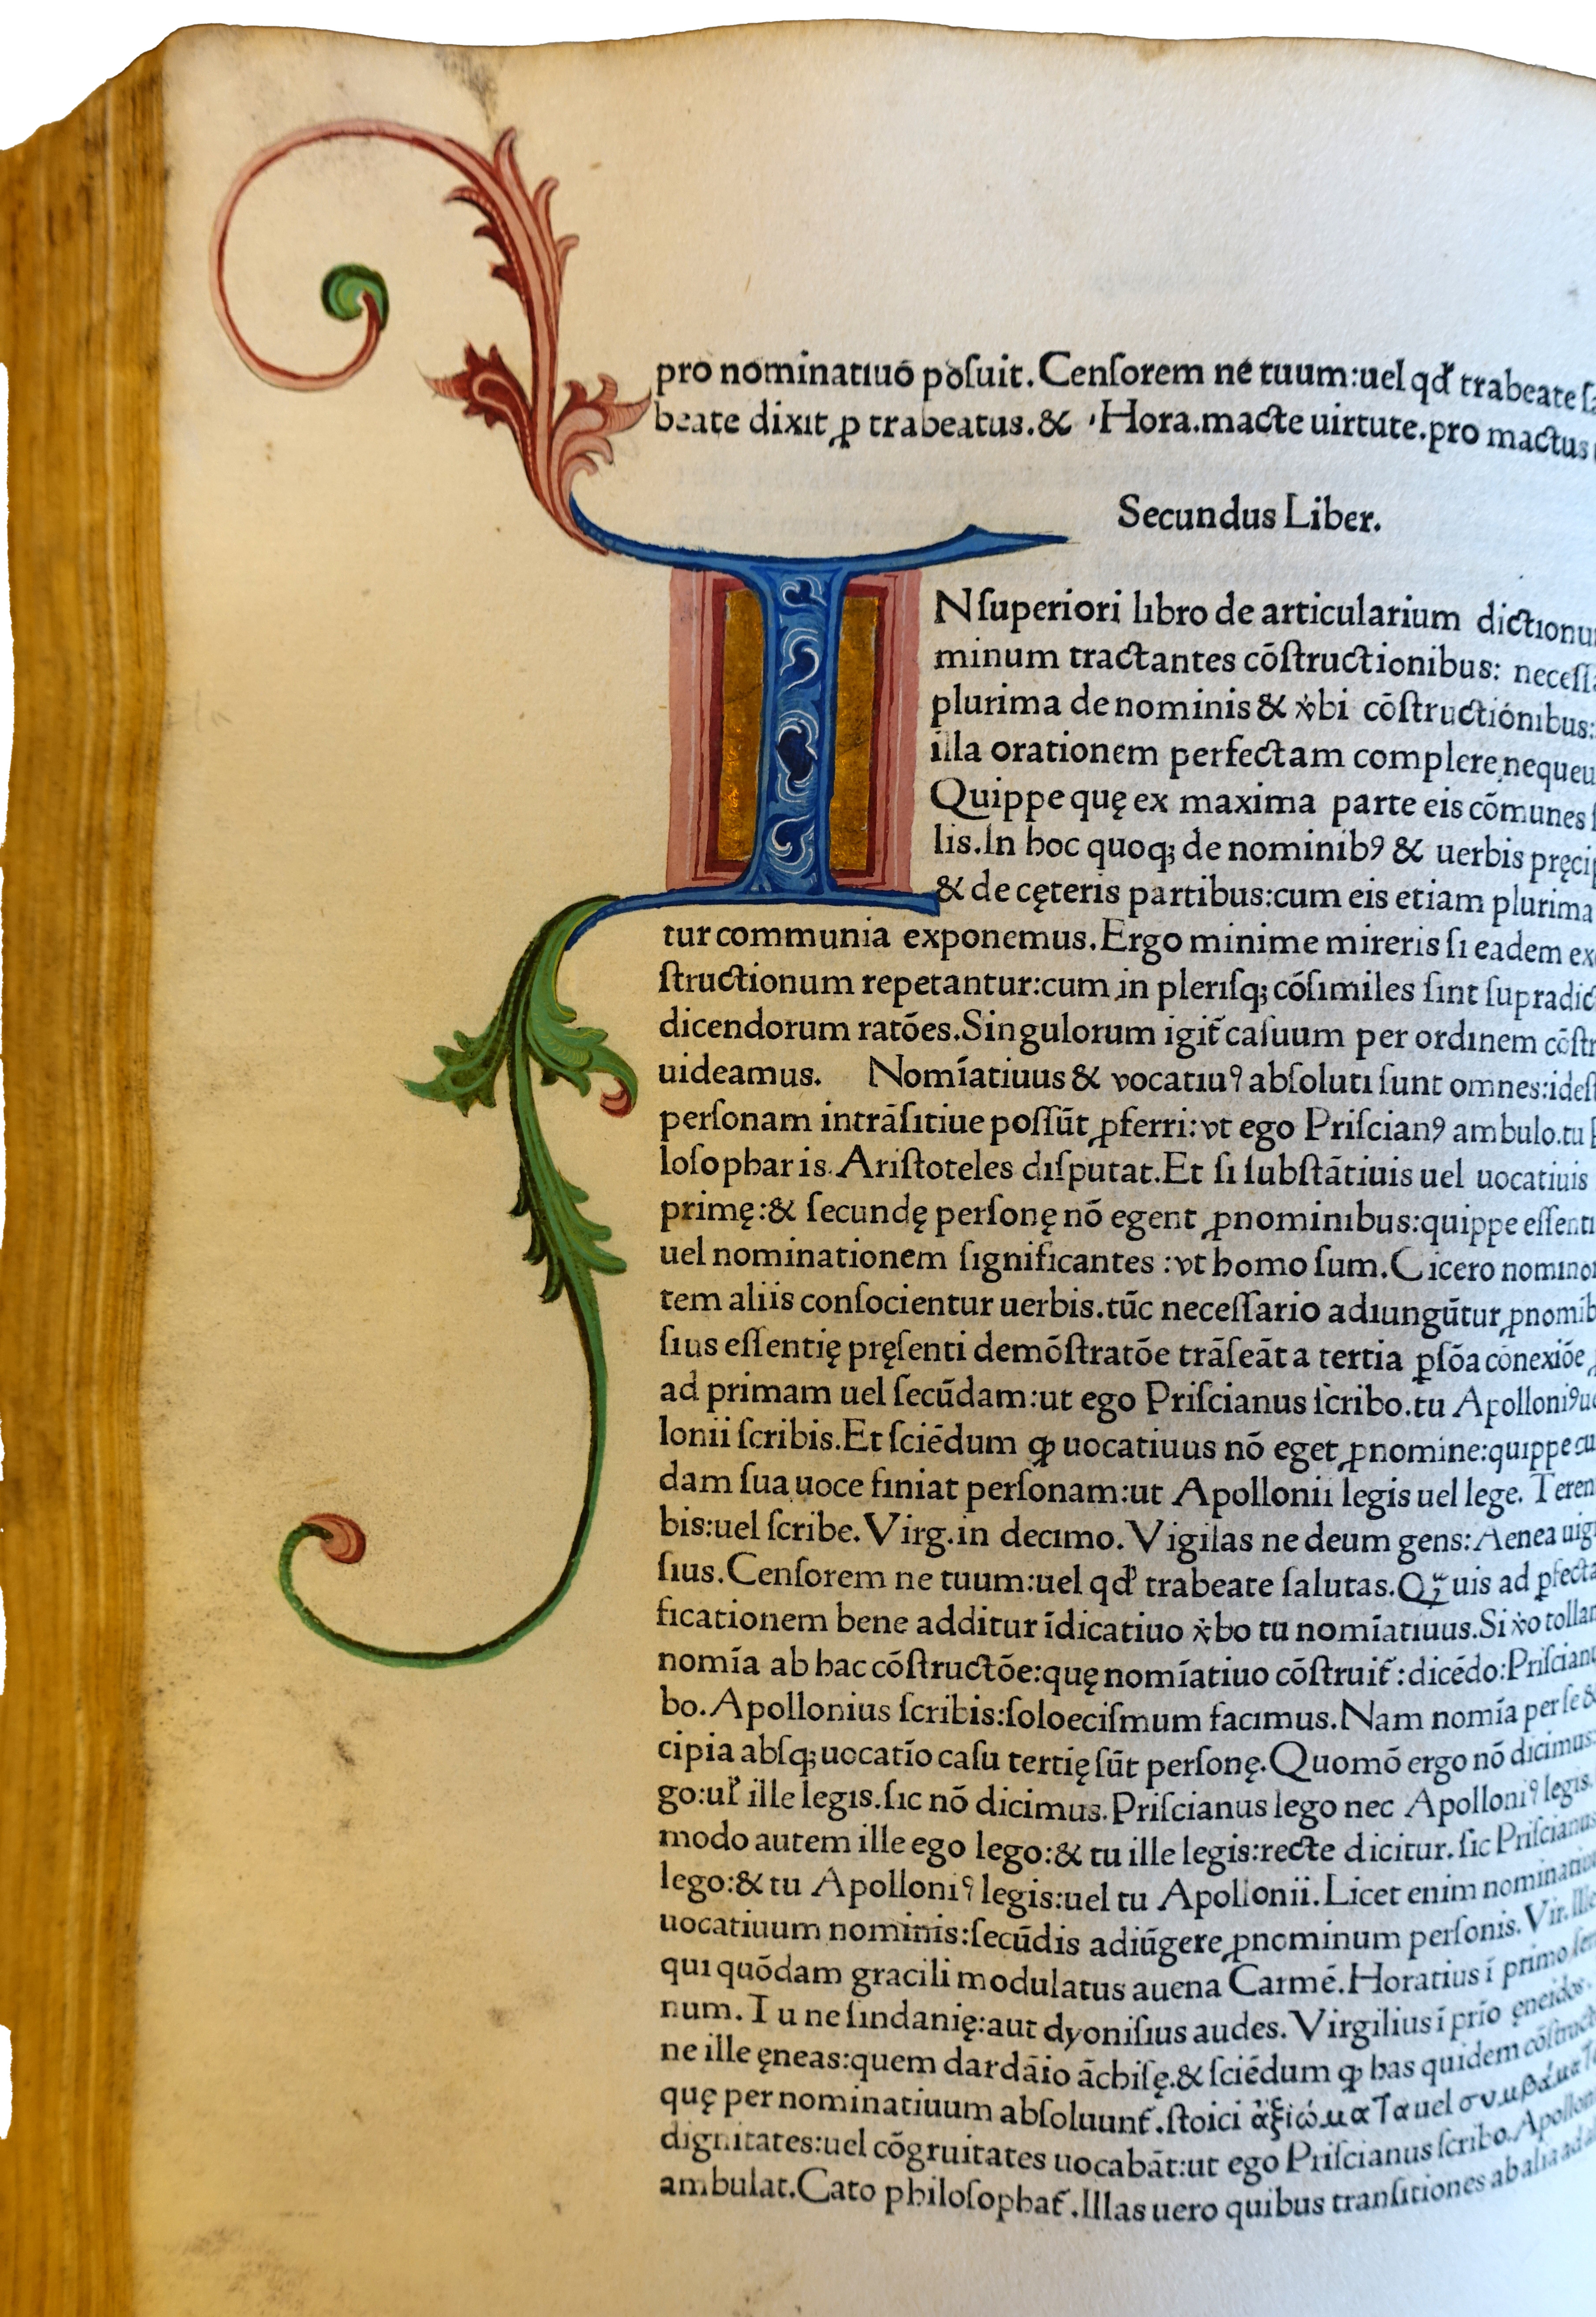 pro nominatiuo posuit. Censorem ne tuum:uel qđ trabeate
beate dixit ꝓ trabeatus.& Hora.macte uirtute.pro mactus
Secundus Liber.
INſuperiori libro de articularium
minum tractantes cōſtructionibus:
plurima de nominis & v̇bi cōſtructionibus:
illa orationem perfectam complere nequeu
Quippe quę ex maxima parte eis cōmunes
lis.In hoc quoq; de nominibꝰ & uerbis
& de cęteris partibus:cum eis etiam plurima
tur communia exponemus.Ergo minime mireris ſi eadem
ſtructionum repetantur:cum in pleriſq; cōſimiles ſint
dicendorum ratōes.Singulorum igit̃ caſuum per ordinem
uideamus. Nomīatiuus & vocatiuꝰ abſoluti ſunt omnes:ideſt
perſonam intrāſitiue poſſūt ꝓferri:vt ego Priſcianꝰ ambulo.tu
loſopharis.Ariſtoteles diſputat.Et ſi ſubſtātiuis uel uocatiuis
primę:& ſecundę perſonę nō egent ꝓnominibus:quippe
uel nominationem ſignificantes :vt homo ſum.Cicero
tem aliis conſocientur uerbis.tūc neceſſario adiungūtur
ſius eſſentię pręſenti demōſtratōe trāſeāt a tertia ꝑſōa conexiōe
ad primam uel ſecūdam:ut ego Priſcianus ſcribo.tu Apolloniꝰ
lonii ſcribis.Et ſciēdum ꝙ uocatiuus nō eget ꝓnomine:quippe
dam ſua uoce finiat perſonam:ut Apollonii legis uel lege.
bis:uel ſcribe.Virg.in decimo.Vigilas ne deum gens:Aenea
ſius.Cenſorem ne tuum:uel qđ trabeate ſalutas.Qᷓuis ad
ficationem bene additur īdicatiuo v̇bo tu nomīatiuus.Si v̇o
nomīa ab hac cōſtructōe:quę nomīatiuo cōſtruit̃:dicēdo:
bo.Apollonius ſcribis:ſoloeciſmum facimus.Nam nomīa per ſe &
cipia abſq; uocatīo caſu tertię ſūt perſonę.Quomō ergo nō dicimus:
go:uł ille legis.ſic nō dicimus.Priſcianus lego nec Apolloniꝰ legis.
modo autem ille ego lego:& tu ille legis:recte dicitur.ſic
lego:& tu Apolloniꝰ legis:uel tu Apollonii.Licet enim
uocatiuum nominis:ſecūdis adiūgere ꝓnominum perſonis.Vir.Ille
qui quōdam gracili modulatus auena Carmē.Horatius ī primo
num.Tu ne ſindanię:aut dyoniſius audes.Virgilius ī prīo ęneidos.
ne ille ęneas:quem dardāio āchiſę.& ſciēdum ꝙ has quidem
quę per nominatiuum abſoluunt̃.ſtoici ἀξιώματα uel
dignitates:uel cōgruitates uocabāt:ut ego Priſcianus ſcribo.
ambulat.Cato philoſophat̃.Illas uero quibus tranſitiones ab alia